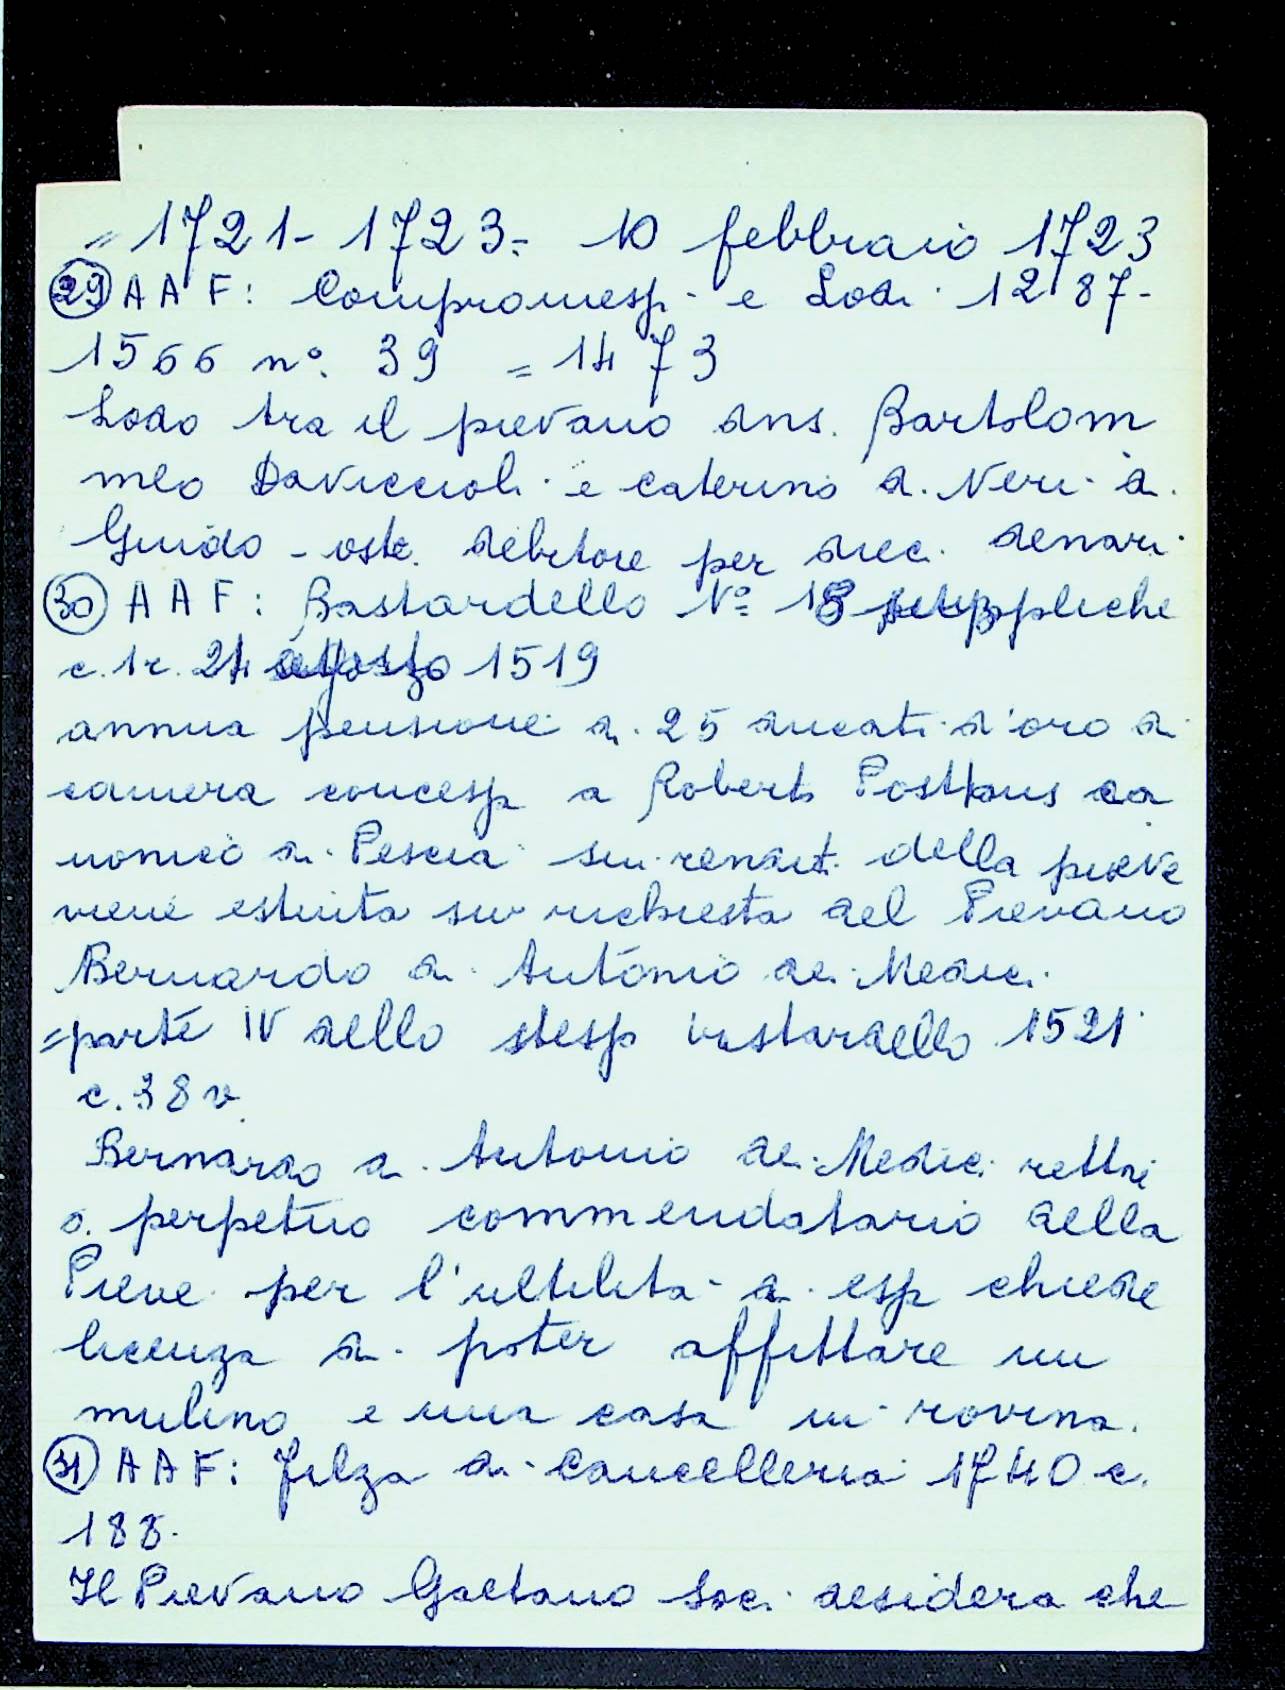 = 1721 - 1723 = 10 febbraio 1723
29 AAF: Compromessi e Lodi 1287-
1566 n°. 39 = 1473
Lodo tra il pievano Bartolom
meo Daviccioli e caterino di Neri di
Guido - oste. debitore per dieci denari
30 AAF: Bastardello N° 18 suppliche
c. 1r. 24 agosto 1519
annua pensione di 25 ducati d'oro di
camera concessa a Roberto ca
nonico di Pescia sui della pieve
viene estinta su richiesta del Pievano
Bernardo di Antonio de Medici.
= parte IV dello stesso 1521
c. 38 v.
Bernardo di Antonio de Medici rettore
o. perpetuo commendatario della
Pieve per l'ultilità di esso chiede
licenza di poter affittare un
mulino e una casa in rovina.
31 AAF: Filza di Cancelleria 1740 c.
188.
Il Pievano Gaetano Soci desidera che